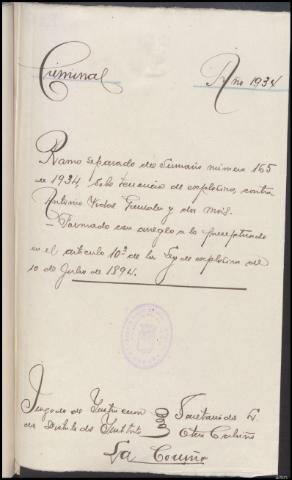 Criminal Año 1934
Ramo separado del Sumario número 165
de 1934, sobre tenencia de explosivos, contra
Antonio Vidal y dos más.
- Formado con arreglo a lo preceptuado
en el artículo 10º de la Ley de explosivos de
10 de Julio de 1894.
Juzgado de Instrucción Secretario de L.
del Distrito del Instituto Otero
La Coruña